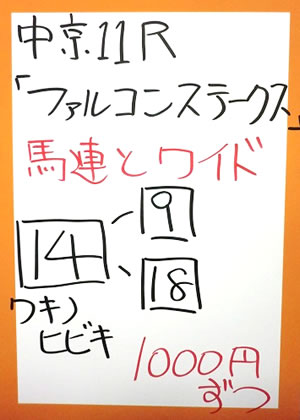 中京11R
「ファルコンステークス」
馬連とワイド
14
9
18
ワキノ
ヒビキ
1000円
ずつ